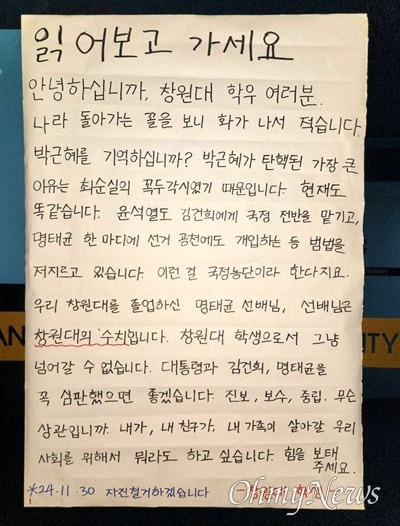 읽어보고 가세요
안녕하십니까, 창원대 학우 여러분.
나라 돌아가는 꼴을 보니 화가 나서 적습니다.
박근혜를 기억하십니까? 박근혜가 탄핵된 가장 큰
이유는 최순실의 꼭두각시였기 때문입니다. 현재도
똑같습니다. 윤석열도 김건희에게 국정 전반을 맡기고,
명태균 한 마디에 선거 공천에도 개입하는 등 범법을
저지르고 있습니다. 이런 걸 국정농단이라 한다지요.
우리 창원대를 졸업하신 명태균 선배님, 선배님은
창원대의 '수치'입니다. 창원대 학생으로서 그냥
넘어갈 수 없습니다. 대통령과 김건희, 명태균을
꼭 심판했으면 좋겠습니다. 진보, 보수, 중립. 무슨
상관입니까. 내가, 내 친구가, 내 가족이 살아갈 우리
사회를 위해서 뭐라도 하고 싶습니다. 힘을 보태
주세요.
*24.11.30 자진철거하겠습니다
OhmyNews